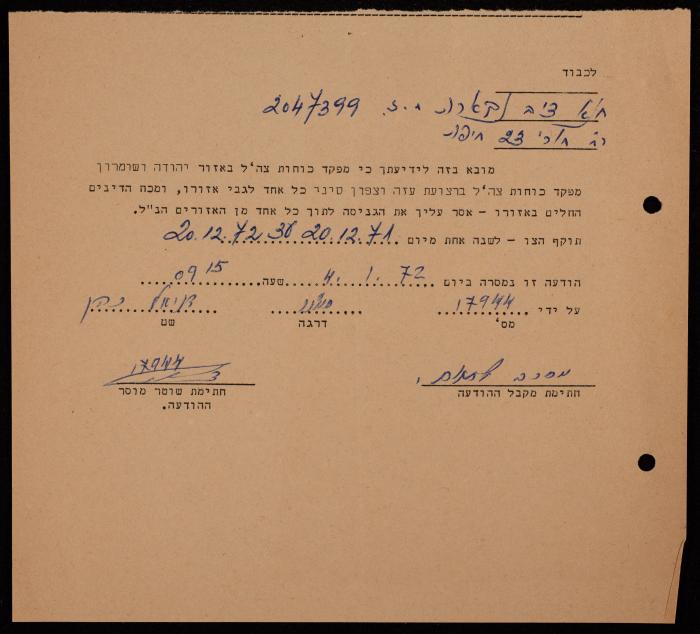 לכבוד
ת.ז. 2047399
רח' חורי 23 חיפה
מובא בזה לידיעתך כי מפקד כוחות צה"ל באזור יהודה ושומרון
מפקד כוחות צה"ל ברצועת עזה וצפון סיני כל אחד לגבי אזורו, ומכח הדינים
החלים באזורו - אסר עליך את הכניסה לתוך כל אחד מן האזורים הנ"ל.
תוקף הצו - לשנה אחת מיום 20.12.71 עד 20.12.72
הודעה זו נמסרה ביום 4.1.72 שעה 09 15
על ידי 17944 דניאל
מס' דרגה שם
17944
חתימת מקבל ההודעה חתימת שוטר מוסר
ההודעה.